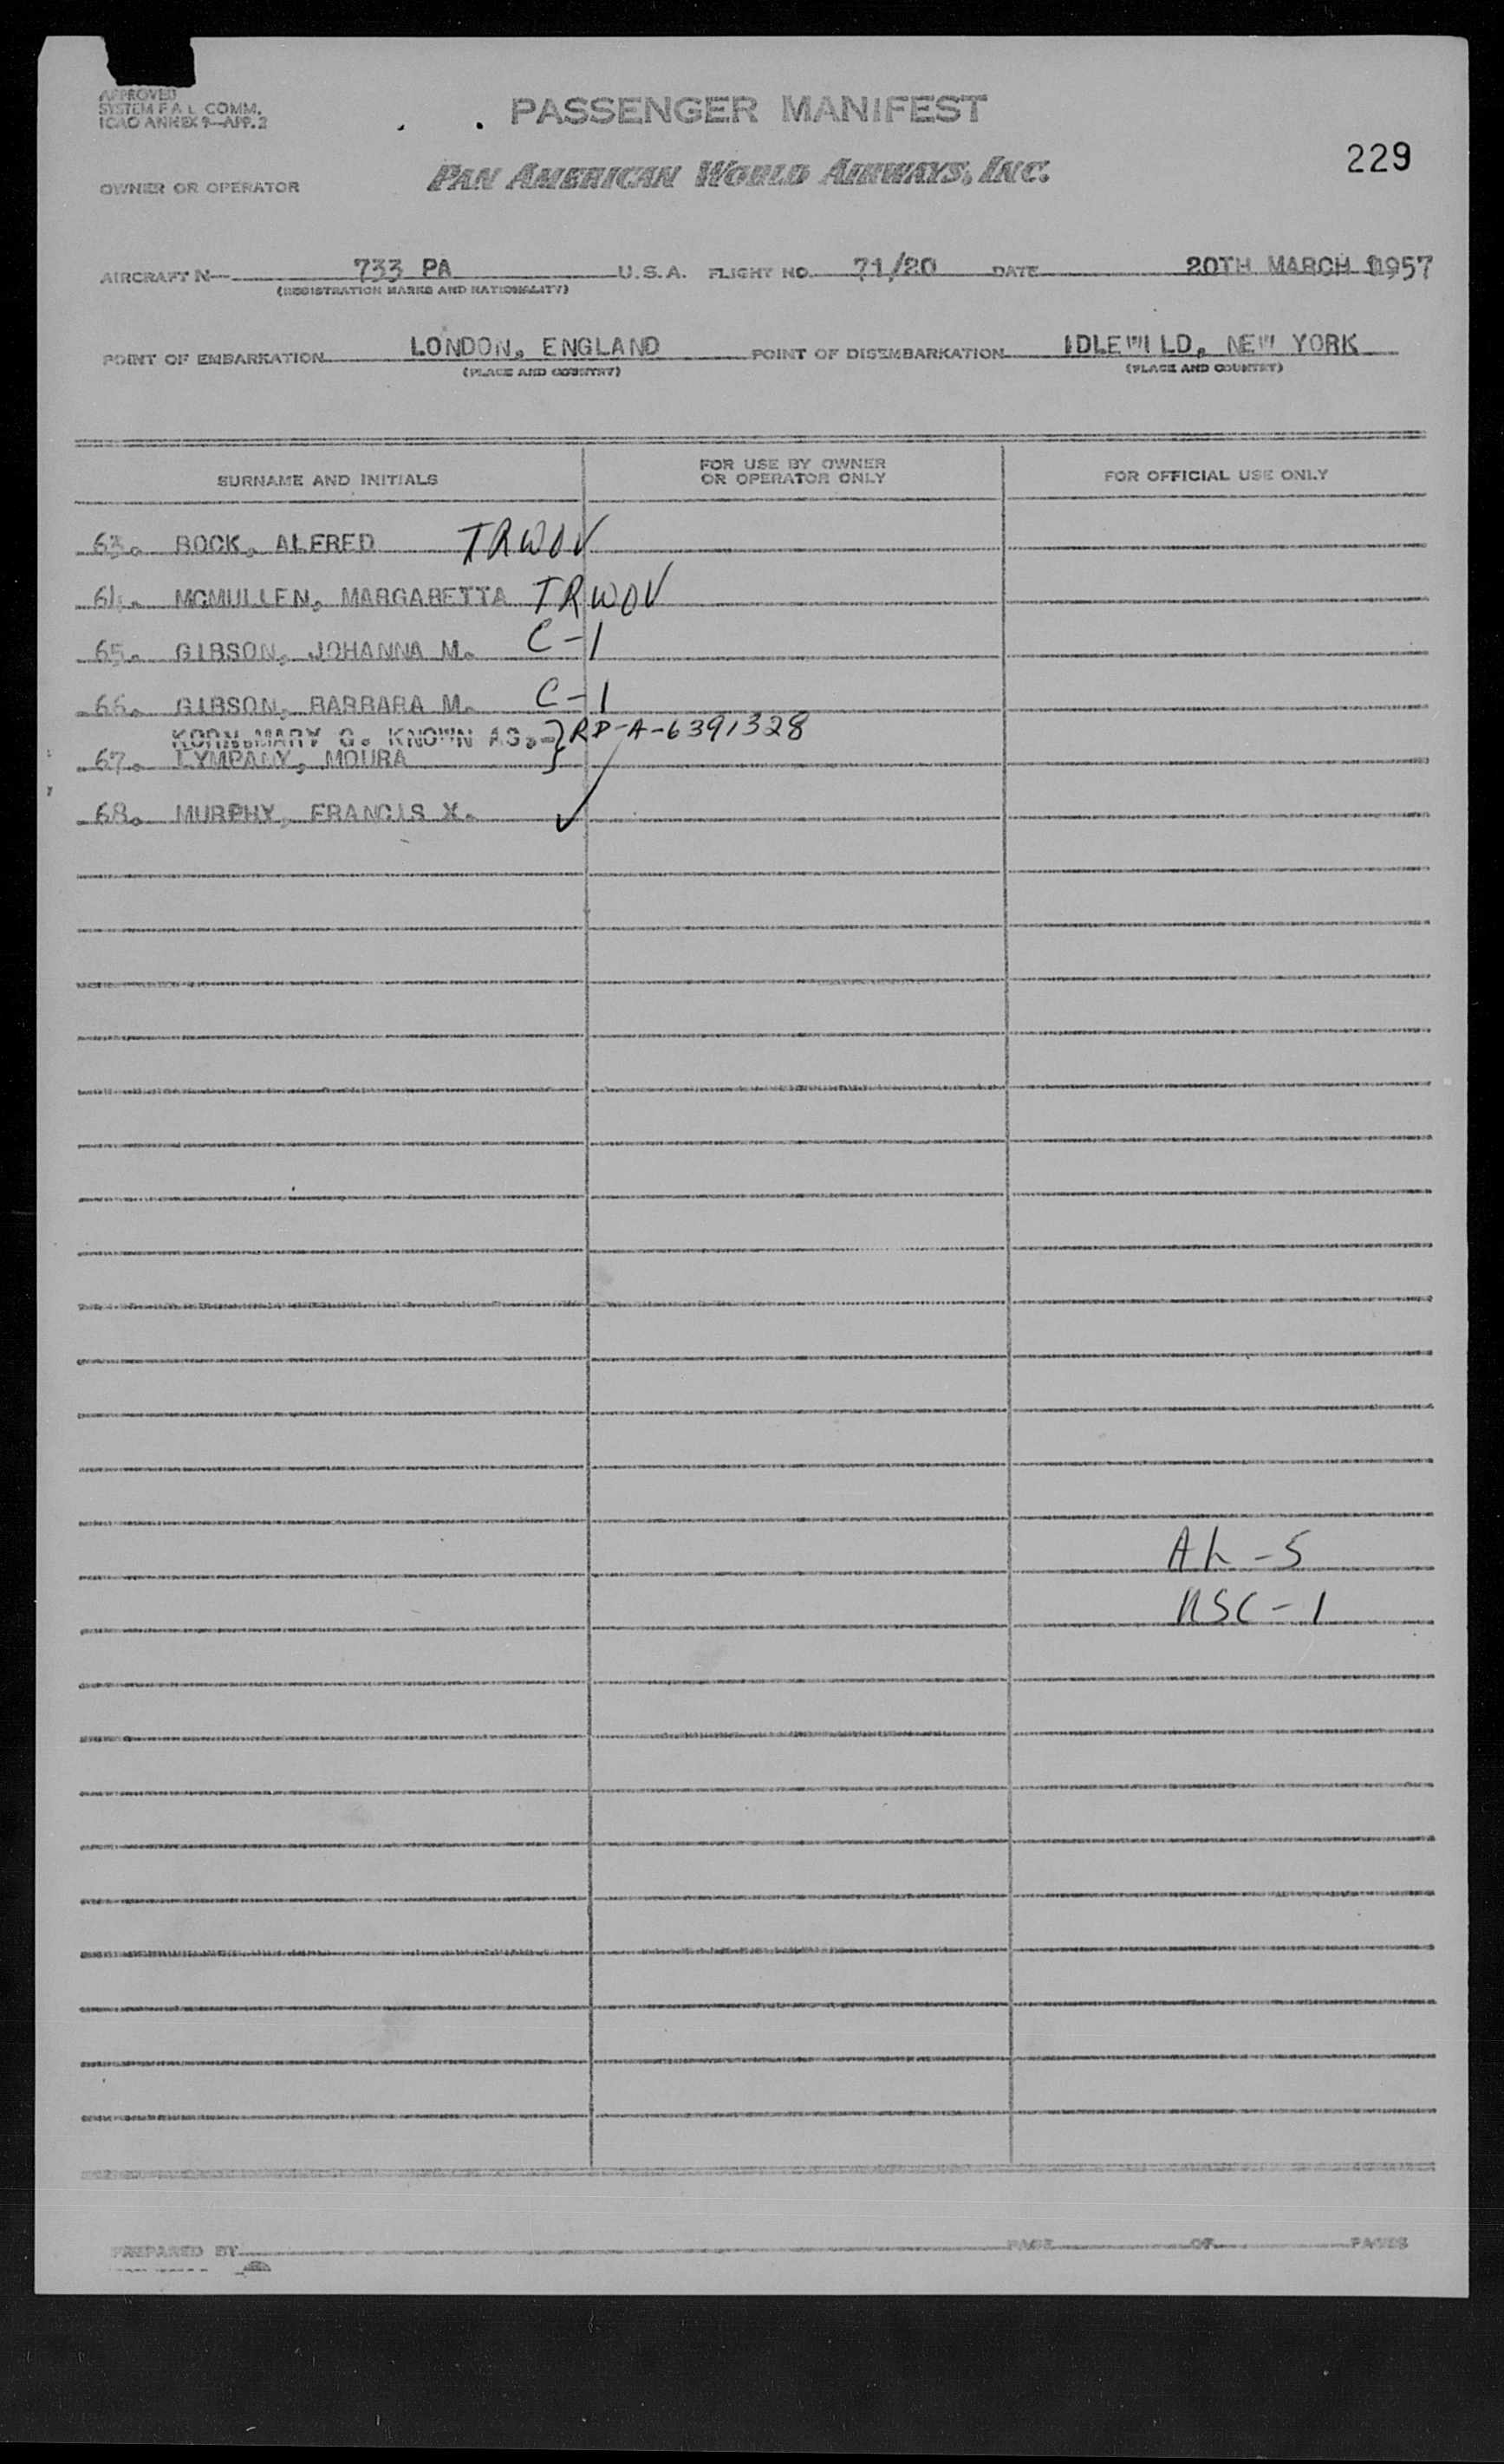 APPROVED
SYSTEM F A L COMM.
ICAO ANNEX 9—APP. 2
PASSENGER MANIFEST
229
OWNER OR OPERATOR PAN AMERICAN WORLD AIRWAYS, INC.
AIRCRAFT N— 733 PA U.S.A. FLIGHT NO. 71/20 DATE 20TH MARCH 1957
(REGISTRATION MARKS AND NATIONALITY)
POINT OF EMBARKATION LONDON, ENGLAND POINT OF DISEMBARKATION IDLEWILD, NEW YORK
(PLACE AND COUNTRY) (PLACE AND COUNTRY)
SURNAME AND INITIALS FOR USE BY OWNER OR OPERATOR ONLY FOR OFFICIAL USE ONLY
63. BOCK, ALFRED TRWOV
64. MCMULLEN, MARGARETTA TRWOV
65. GIBSON, JOHANNA M. C-1
66. GIBSON, BARBARA M. C-1
KORN, MARY G. KNOWN AS.-} RP-A-6391328
67. LYMPANY, MOURA
68. MURPHY, FRANCIS X. ✓
-5
USC-1
PREPARED BY PAGE OF PAGES